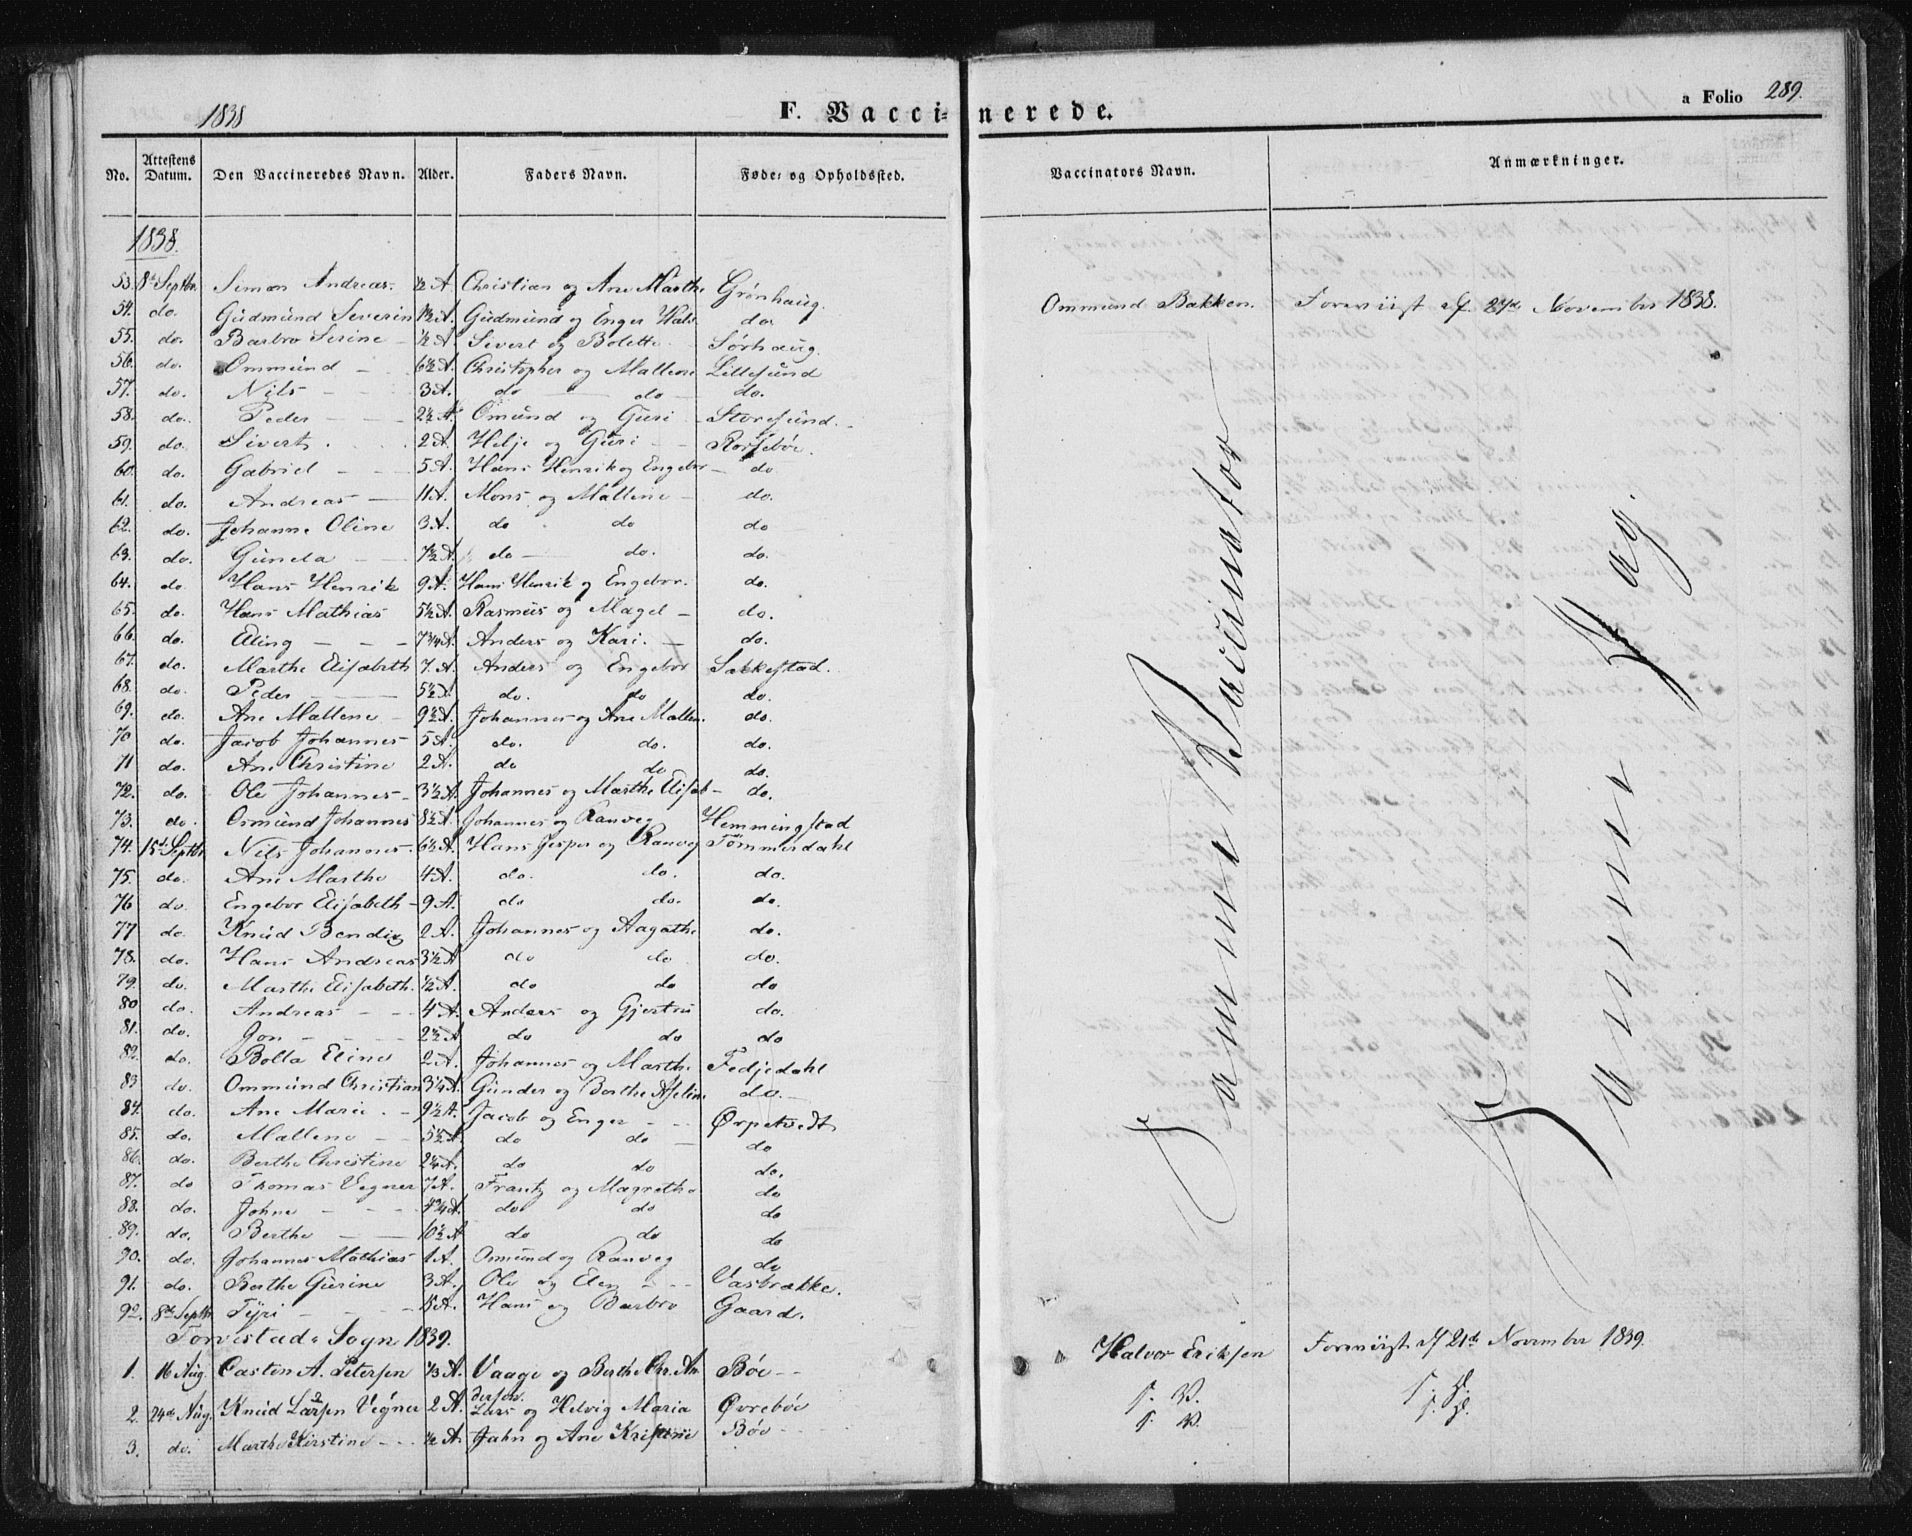 1838
F. Vaccinerede.
a Folio 289.
No. Attestens Datum. Den Vaccineredes Navn. Alder. Faders Navn. Føde- og Opholdssted. Vaccinators Navn. Anmærkninger.
1838.
53. 8de Septbr. Simon Andreas. ½ A Christian og Ane Marthe Grønhaug. Ommund Bakken. Foreviist af 21de November 1838.
54. do. Gudmund Severin 1½ A. Gudmund og Enger do.
55. do. Barbro Serine ½ A Sivert og Bolette Sørhaug.
56. do. Ommund 6½ A. Christopher og Mallene Lillesund
57. do. Nils 3 A. do do do.
58. do. Peder 2½ A. Omund og Guri Storesund.
59. do. Sivert. 2 A. Helje og Guri Rossebøe.
60. do. Gabriel 5 A. Hans Henrik og Engebor do
61. do. Andreas 11 A. Mons og Mallene do.
62. do. Johanne Oline 3 A. do do do
63. do. Gunela 7½ A. do do. do.
64. do Hans Henrik 9 A. Hans Henrik og Engebor. do.
65. do. Hans Mathias 5½ A. Rasmus og Magel do.
66. do. Eling 7¾ A. Anders og Kari. do.
67. do. Marthe Elisabeth 7. A. Anders og Engebor Sakkestad.
68. do. Peder 5½ A. do. do do.
69. do. Ane Mallene 9½ A. Johannes og Ane Mallen. do.
70 do. Jacob Johannes 5 A. do. do. do.
71 do. Ane Christine 2 A. do do do.
72. do. Ole Johannes 3½ A. Johannes og Marthe Elisab do.
73. do. Ormund Johannes 8½ A. Johannes og Ranveg Hemmingstad
74. 15de Septbr. Nils Johannes. 6½ A. Hans Jesper og Ranveg Tømmerdahl
75. do. Ane Marthe 4 A. do. do. do.
76 do. Engebor Elisabeth 9 A. do do. do.
77 do. Knud Bendig 2 A. Johannes og Aagathe do.
78. do. Hans Andreas 3½ A do do. do.
79. do. Marthe Elisabeth. ½ A. do do do
80 do. Andreas 4 A. Anders og Gjertru do.
81. do. Jon 2½ A do do do
82. do. Bolla Eline 2 A. Johannes og Marthe Fedjedahl
83 do. Ommund Christian 3¼ A. Gunder og Berthe Aseline do.
84. do. Ane Marie. 9½ A. Jacob og Enger Ørpetvedt
85. do. Mallene 5½ A. do do do
86. do. Berthe Christine 2¼ A. do do do.
87. do Thomas Vegner 7 A. Frantz og Magrethe do
88. do. Johne 4¾ A. do do do
89. do. Berthe 10½ A do do do
90. do. Johannes Mathias 1 A. Omund og Ranveg do
91. do. Berthe Gurine 3 A. Ole og Elen Vasbrække.
92. 8de Septbr Tyri 15 A. Hans og Barbro Gaard.
Samme Vaccinator
Samme Dag
Torvestad Sogn 1839.
1. 16 Aug. Casten A. Petersen ⅓ A. Vaage og Berthe Chr. An Bøe Halvor Eriksen Foreviist af 21de November 1839.
dersen.
2. 24de Aug. Knud Larsen Vegner 2 A. Lars og Helvig Maria Øvrebøe s. V. s. D.
3. do. Marthe Kirstine ½ A. Jahn og Ane Kristine Bøe s. V. s. D.